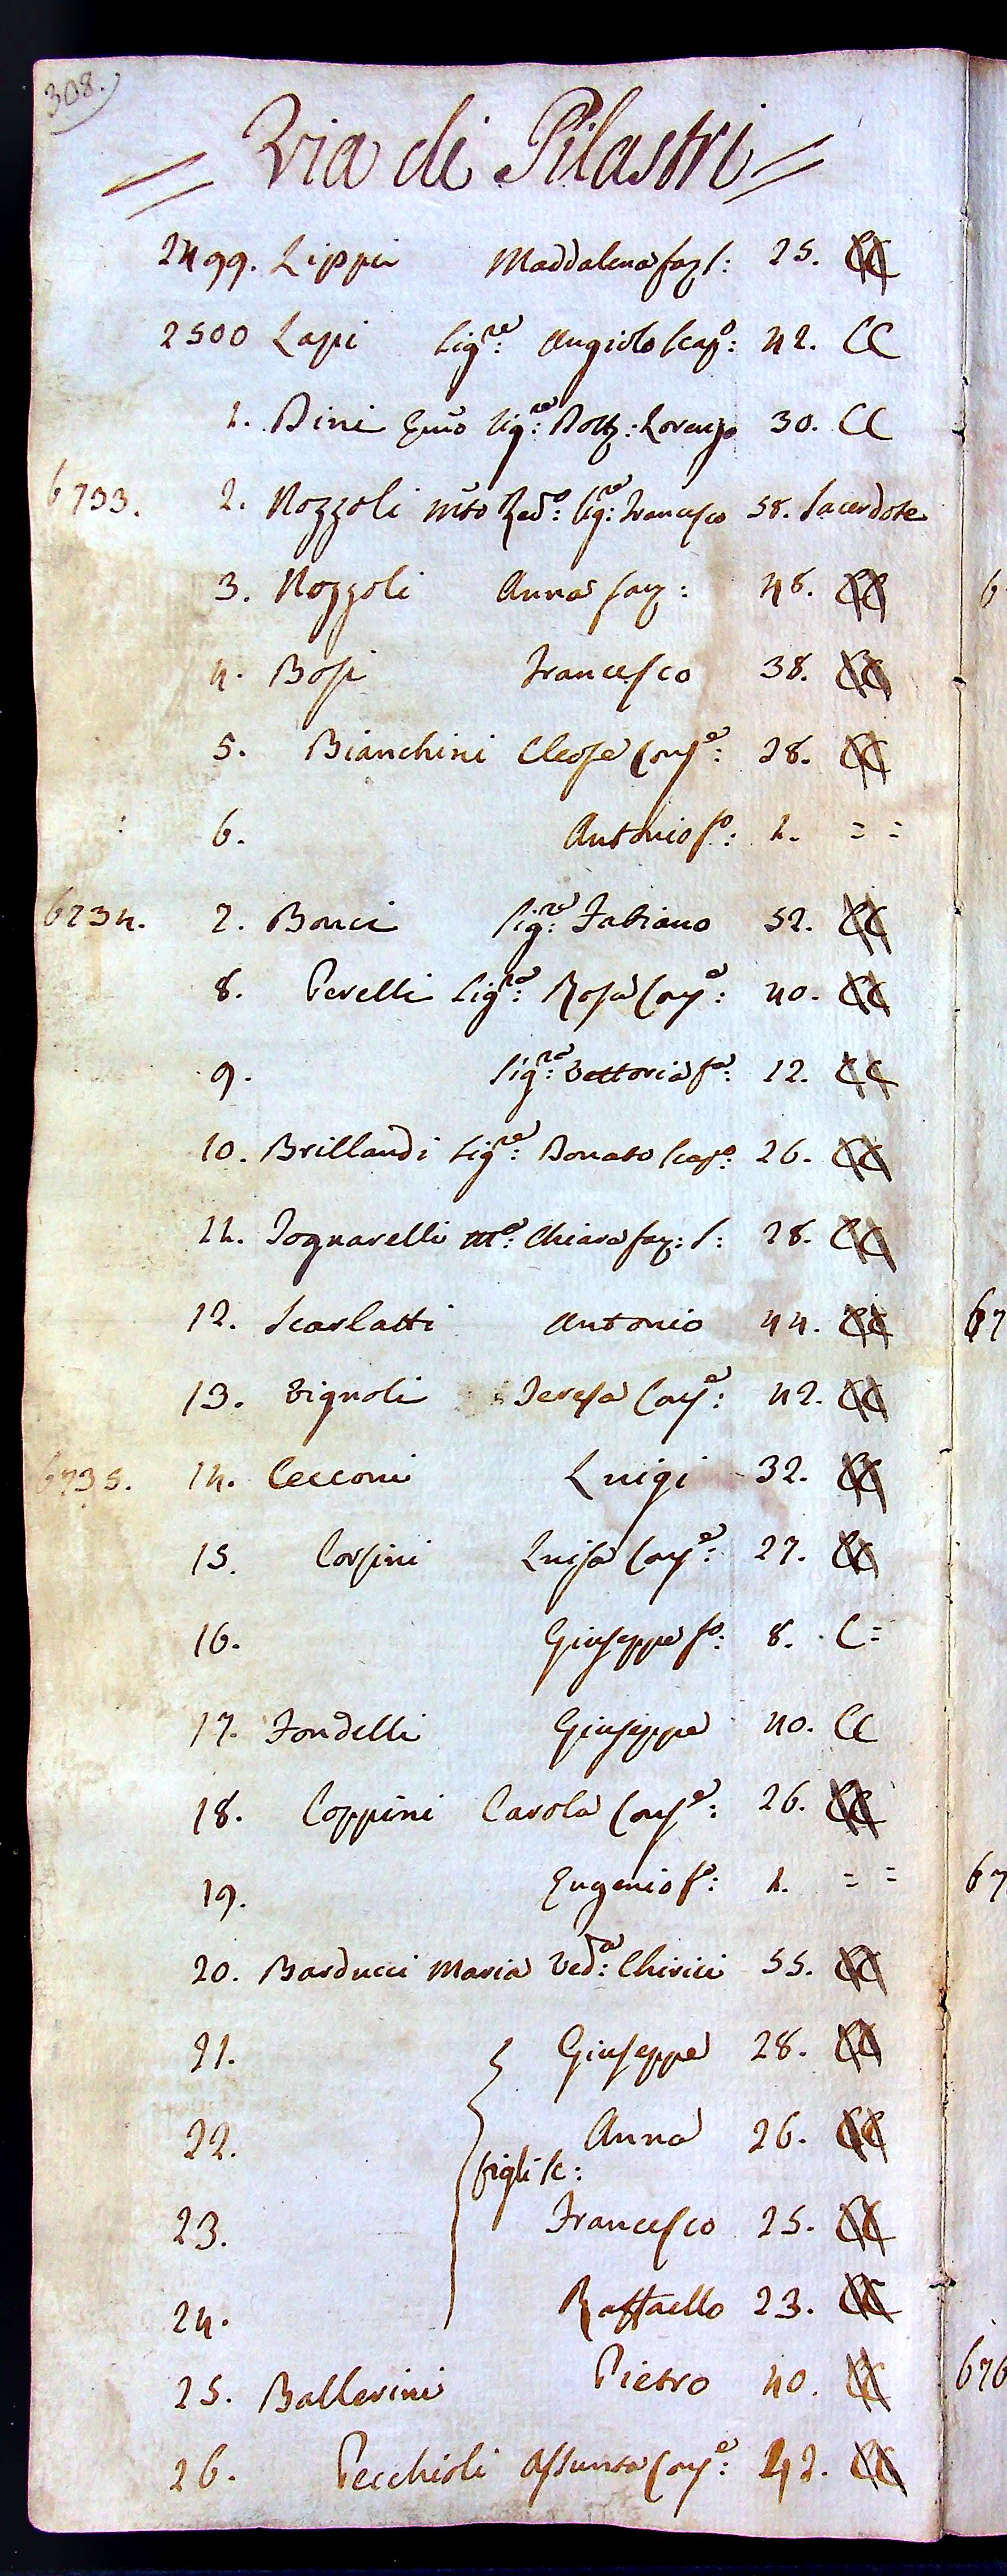 308.
= Via di Pilastri =
2499. Lippi Maddalena faz: s: 25. CC
2500 Lapi Sig:re Angiolo scap:o 42. CC
1. Dini Sig:re Dott: Lorenzo 30. CC
6733. 2. Nozzoli Red:o Sig:re Francesco 58. Sacerdote
3. Nozzoli Anna faz: 48. CC
4. Bosi Francesco 38. CC
5. Bianchini Cleofe Cong:e 28. CC
6. Antonio f:o 1. = =
6734. 7. Bonci Sig:re Fabiano 52. CC
8. Perelli Sig:ra Rosa Cong:e 40. CC
9. Sig:ra Vettoria f:a 12. CC
10. Brillandi Sig:re Donato scap:o 26. CC
11. Fognarelli M:a Chiara faz: s: 28. CC
12. Scarlatti Antonio 44. CC
13. Vignoli Teresa Cong:e 42. CC
6735. 14. Cecconi Luigi 32. CC
15. Corsini Luisa Cong:e 27. CC
16. Giuseppe f:o 8. C=
17. Fondelli Giuseppe 40. CC
18. Coppini Carola Cong:e 26. CC
19. Eugenio f:o 1. = =
20. Barducci Maria Ved:a Chirici 55. CC
21. Giuseppe 28. CC
22. Anna 26. CC
figli sc:
23. Francesco 25. CC
24. Raffaello 23. CC
25. Ballerini Pietro 40. CC
26. Pecchioli Assunta Cong:e 42. CC
6
67
67
676